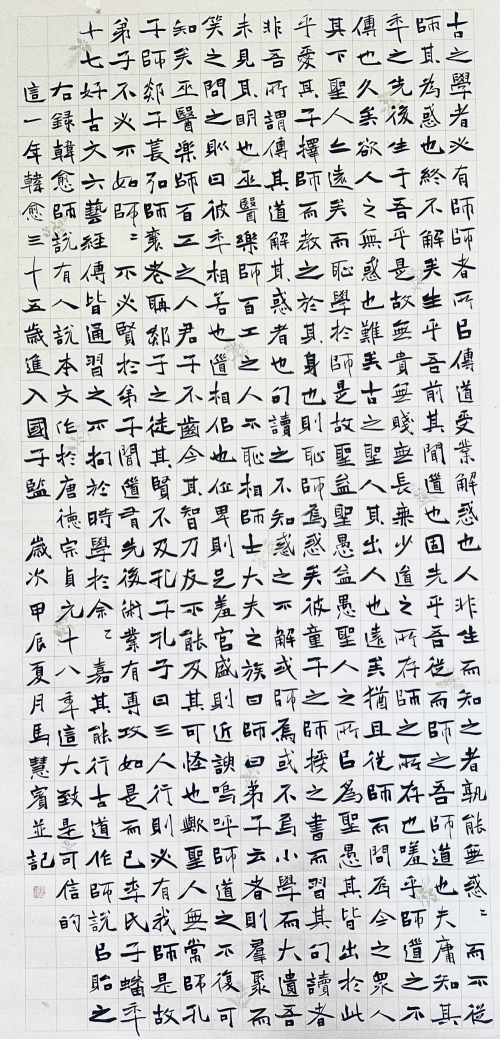 古之學者必有師師者所㠯傳道受業解惑也人非生而知之者孰能無惑〻而不從
師其為惑也終不解矣生乎吾前其聞道也固先乎吾從而師之吾師道也夫庸知其
年之先後生于吾乎是故無貴無賤無長無少道之所存師之所存也嗟乎師道之不
傳也久矣欲人之無惑也難矣古之聖人其出人也遠矣猶且從師而問焉今之衆人
其下聖人亦遠矣而恥學於師是故聖益聖愚益愚聖人之所㠯為聖愚其皆出於此
乎愛其子擇師而教之於其身也則恥師焉惑矣彼童子之師授之書而習其句讀者
非吾所謂傳其道解其惑者也句讀之不知惑之不解或師焉或不焉小學而大遺吾
未見其明也巫醫樂師百工之人不恥相師士大夫之族曰師曰弟子云者則羣聚而
笑之問之則曰彼年相若也道相似也位卑則足羞官盛則近諛嗚呼師道之不復可
知矣巫醫樂師百工之人君子不齒今其智乃反不能及其可怪也歟聖人無常師孔
子師郯子萇弘師襄老聃郯子之徒其賢不及孔子孔子曰三人行則必有我師是故
弟子不必不如師〻不必賢於弟子聞道有先後術業有專攻如是而已李氏子蟠年
十七好古文六藝經傳皆通習之不拘於時學於余〻嘉其能行古道作師說㠯貽之
右錄韓愈師說有人說本文作於唐德宗貞元十八年這大致是可信的
這一年韓愈三十五歲進入國子監 歲次甲辰夏月馬慧賓並記